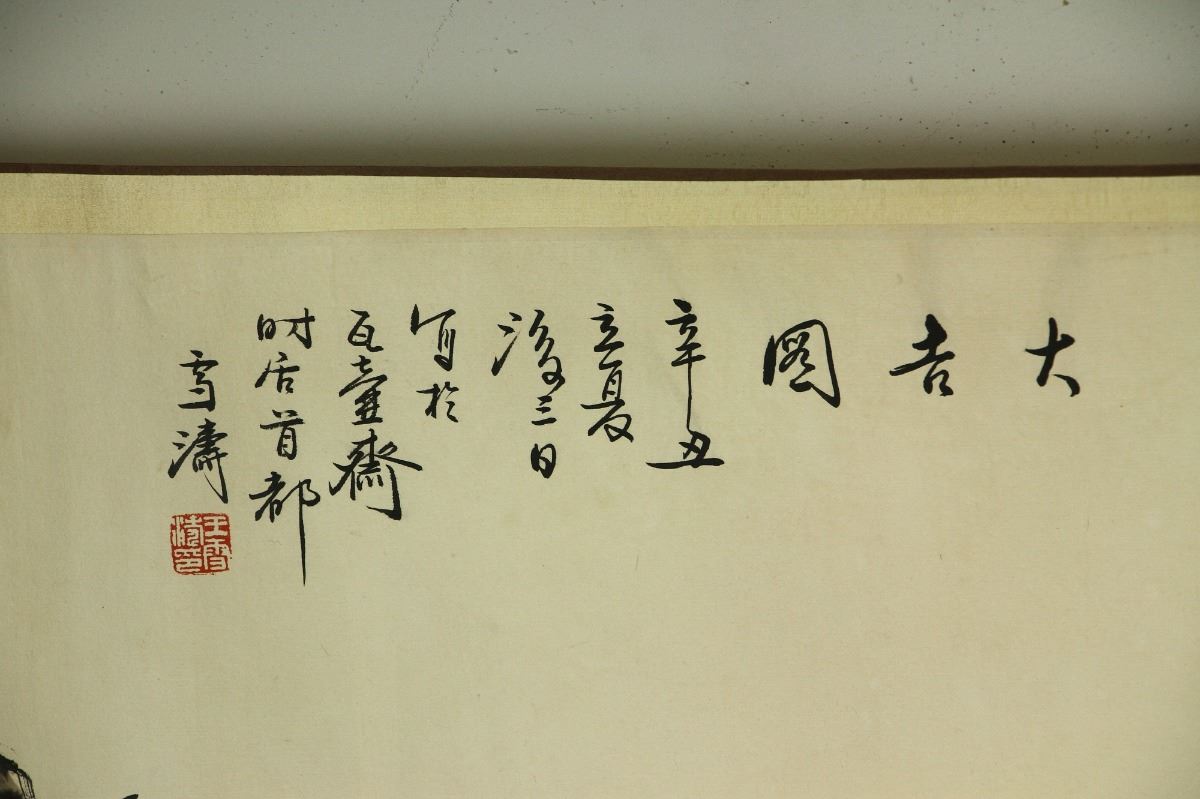 大吉圖
辛丑
立夏
後三日
寫於
瓦壺齋
時居首都
雪濤
王雪濤印